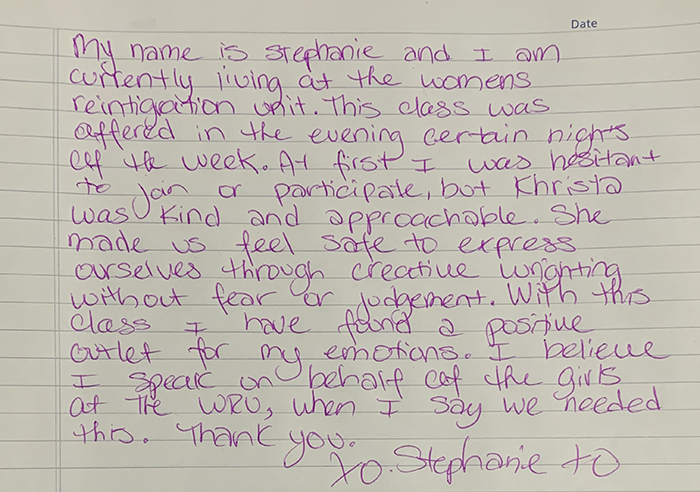 Date
My name is Stephanie and I am
currently living at the womens
reintigration unit. This class was
offered in the evening certain nights
of the week. At first I was hesitant
to join or participate, but Khrista
was kind and approachable. She
made us feel safe to express
ourselves through creative wrighting
without fear or judgement. With this
class I have found a positive
outlet for my emotions. I believe
I speak on behalf of the girls
at the WRU, when I say we needed
this. Thank you.
xo. Stephanie xo